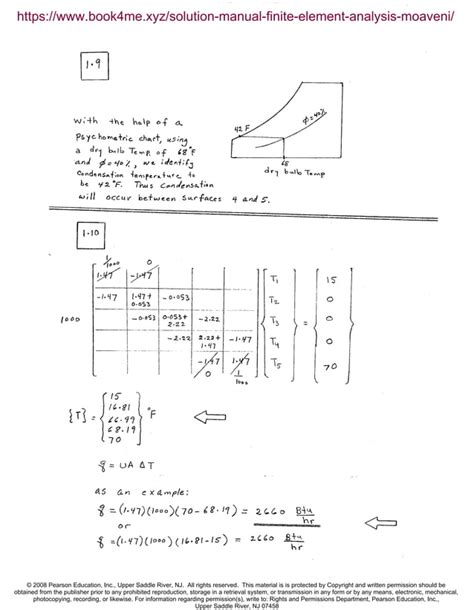 https://www.book4me.xyz/solution-manual-finite-element-analysis-moaveni/
1.9
With the help of a
Psychometric chart, using
a dry bulb Temp. of 68°F
and ϕ=40%, we identify
Condensation temperature to
be 42°F. Thus Condensation
will occur between surfaces 4 and 5.
42 F
ϕ=40%
68
dry bulb Temp
1.10
1/1000 0
1.47 -1.47
-1.47 1.47+0.053 -0.053
-0.053 0.053+2.22 -2.22
-2.22 2.22+1.47 -1.47
-1.47 1.47
0 1/1000
1000
T1
T2
T3
T4
T5
=
15
0
0
0
70
{T} = {15 16.81 66.99 68.19 70} °F
q = UA ΔT
as an example:
q = (1.47)(1000)(70-68.19) = 2660 Btu/hr
or
q = (1.47)(1000)(16.81-15) = 2660 Btu/hr
© 2008 Pearson Education, Inc., Upper Saddle River, NJ. All rights reserved. This material is protected by Copyright and written permission should be
obtained from the publisher prior to any prohibited reproduction, storage in a retrieval system, or transmission in any form or by any means, electronic, mechanical,
photocopying, recording, or likewise. For information regarding permission(s), write to: Rights and Permissions Department, Pearson Education, Inc.,
Upper Saddle River, NJ 07458